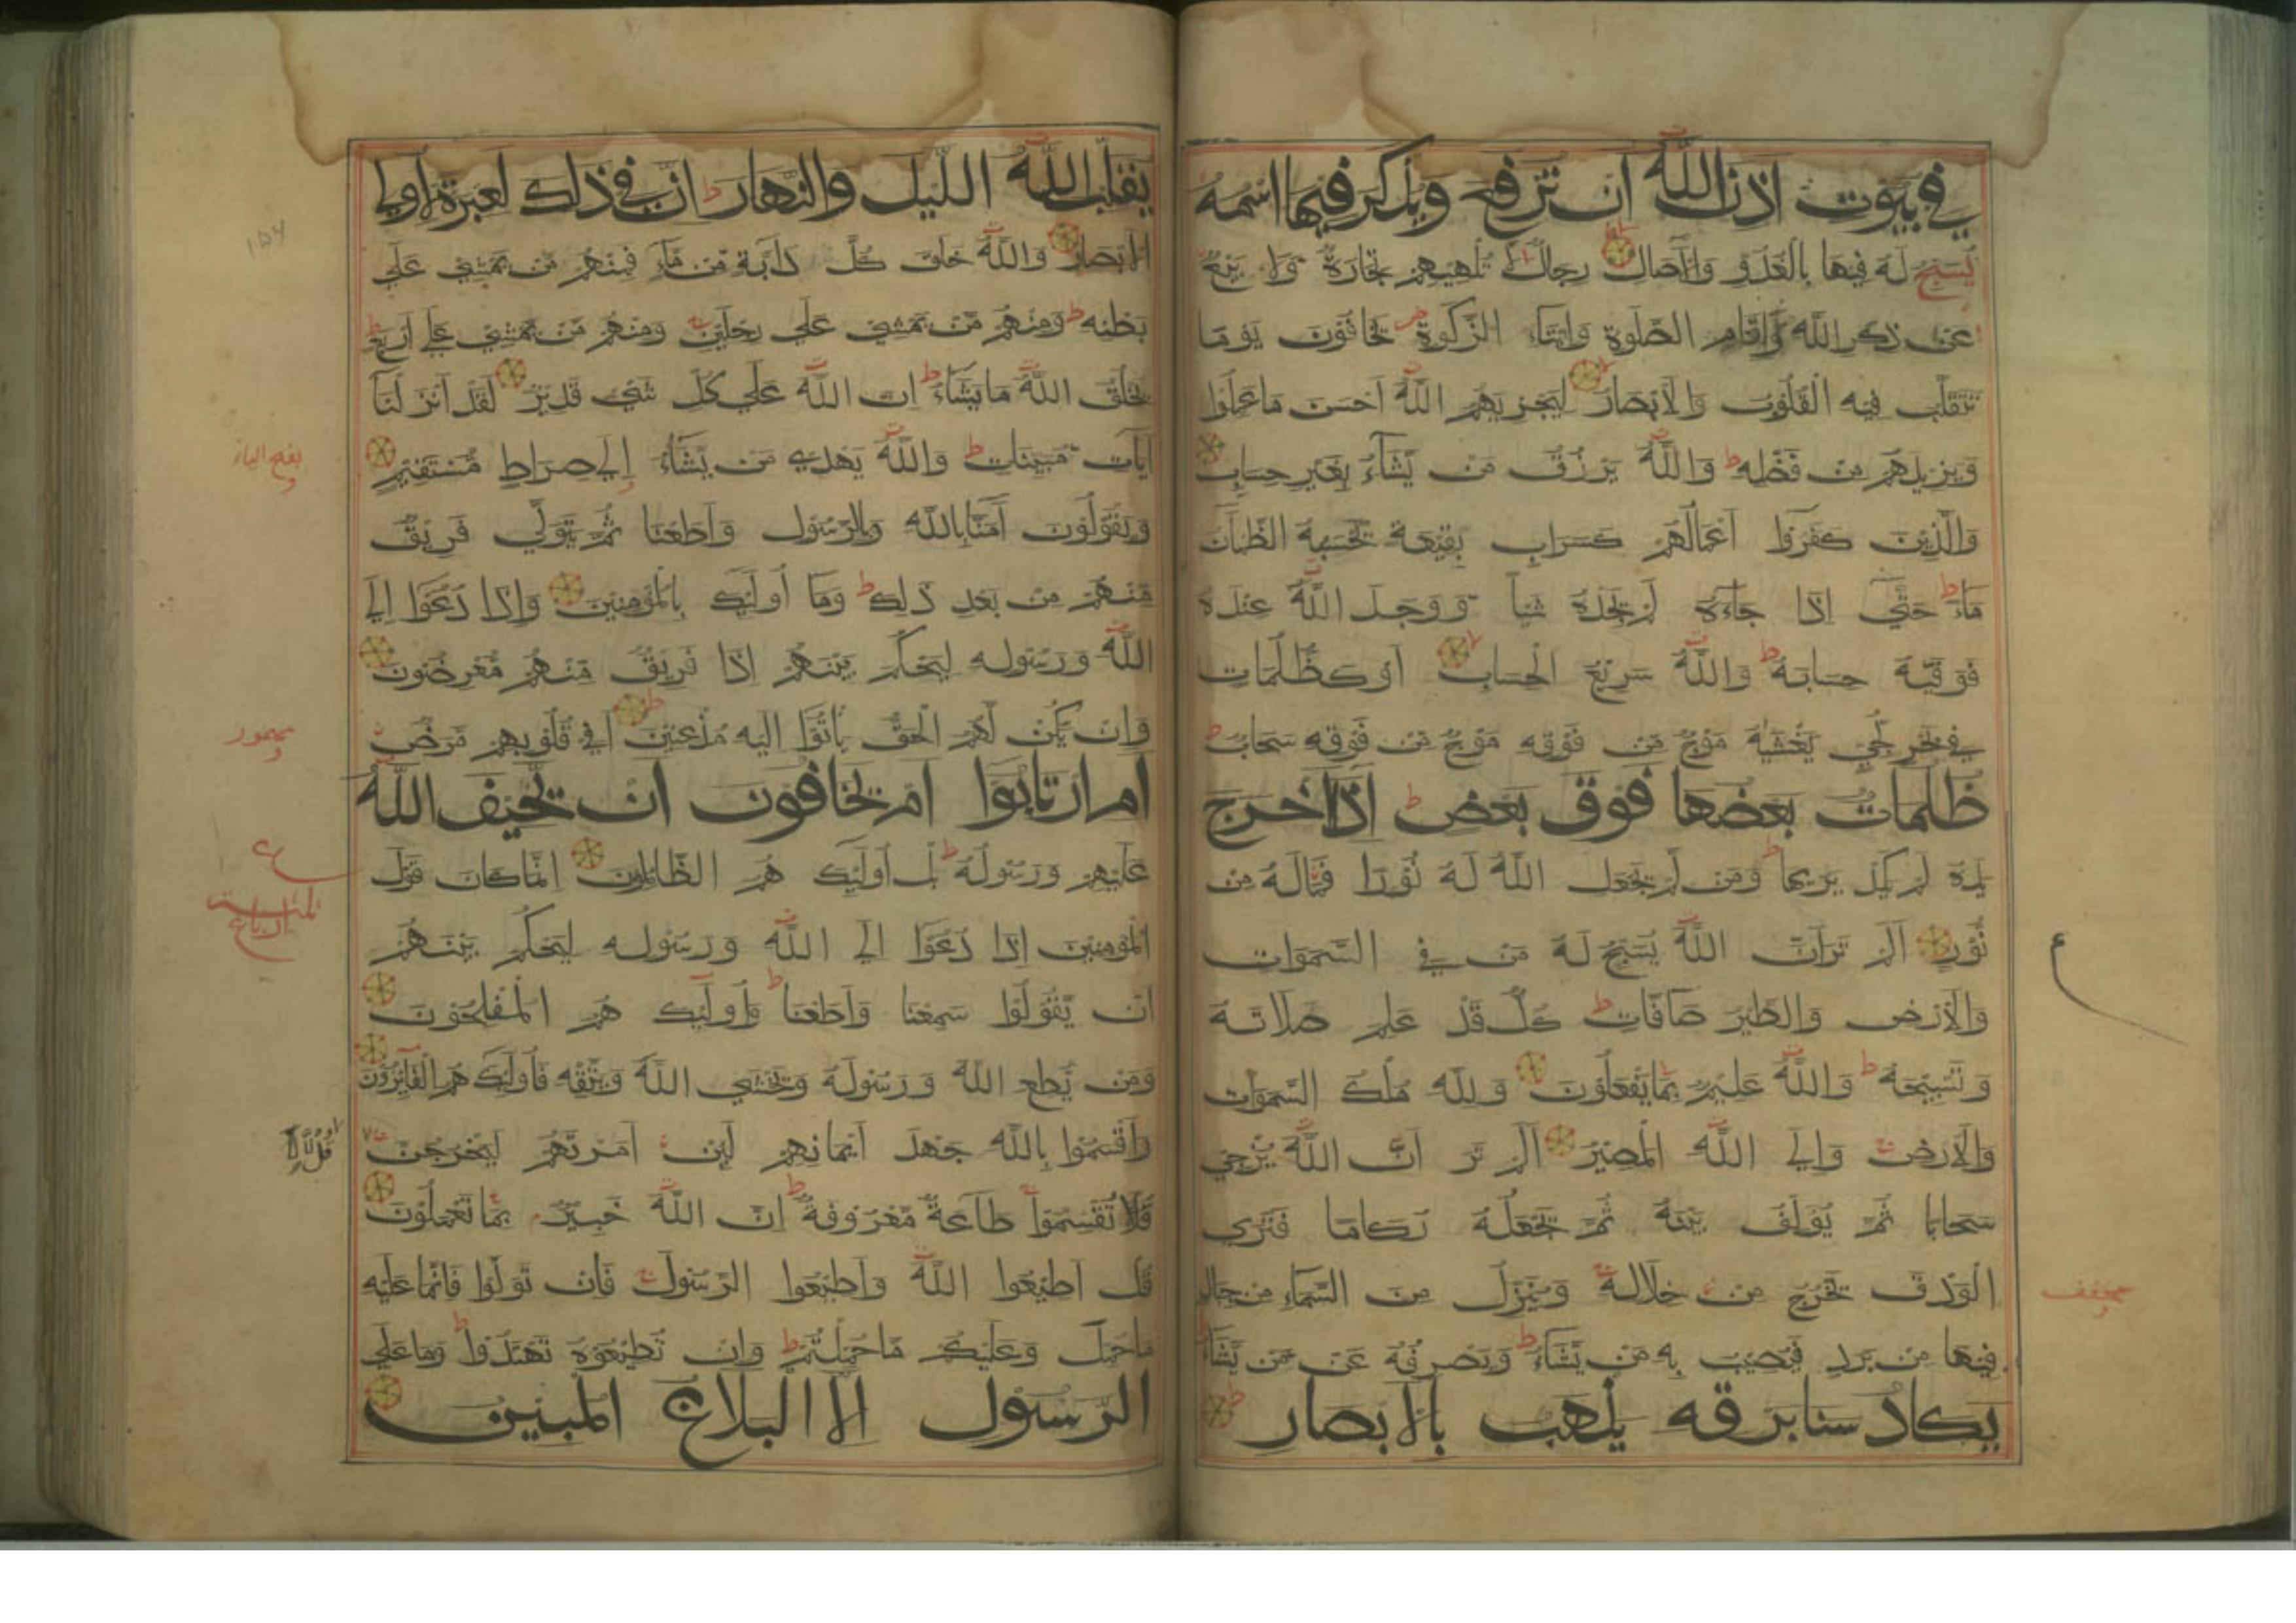 في بيوت اذن الله ان ترفع ويذكر فيها اسمه
يسبح له فيها بالغدو والآصال رجال لا تلهيهم تجارة ولا بيع
عن ذكر الله وإقام الصلوة وايتاء الزكوة يخافون يوما
تتقلب فيه القلوب والأبصار ليجزيهم الله أحسن ما عملوا
ويزيدهم من فضله والله يرزق من يشاء بغير حساب
والذين كفروا أعمالهم كسراب بقيعة يحسبه الظمآن
ماء حتى إذا جاءه لم يجده شيأ ووجد الله عنده
فوفيه حسابه والله سريع الحساب أو كظلمات
في بحر لجي يغشيه موج من فوقه موج من فوقه سحاب
ظلمات بعضها فوق بعض إذا اخرج
يده لم يكد يريها ومن لم يجعل الله له نورا فماله من
نور ألم تر أن الله يسبح له من في السموات
والأرض والطير صافات كل قد علم صلاته
وتسبيحه والله عليم بما يفعلون ولله ملك السموات
والأرض وإلى الله المصير ألم تر أن الله يزجي
سحابا ثم يؤلف بينه ثم يجعله ركاما فترى
الودق يخرج من خلاله وينزل من السماء من جبال
فيها من برد فيصيب به من يشاء ويصرفه عن من يشاء
يكاد سنا برقه يذهب بالأبصار
مخفف
يقلب الله الليل والنهار ان في ذلك لعبرة لاولي
الأبصار والله خلق كل دآبة من ماء فمنهم من يمشي على
بطنه ومنهم من يمشي على رجلين ومنهم من يمشي على أربع
يخلق الله ما يشاء ان الله على كل شيء قدير لقد أنزلنا
آيات مبينات والله يهدي من يشاء إلى صراط مستقيم
ويقولون آمنا بالله وبالرسول وأطعنا ثم يتولى فريق
منهم من بعد ذلك وما أولئك بالمؤمنين وإذا دعوا إلى
الله ورسوله ليحكم بينهم إذا فريق منهم معرضون
وان يكن لهم الحق يأتوا اليه مذعنين أفي قلوبهم مرض
ام ارتابوا ام يخافون ان يحيف الله
عليهم ورسوله بل أولئك هم الظالمون انما كان قول
المؤمنين إذا دعوا إلى الله ورسوله ليحكم بينهم
ان يقولوا سمعنا وأطعنا وأولئك هم المفلحون
ومن يطع الله ورسوله ويخشى الله ويتقه فأولئك هم الفائزون
وأقسموا بالله جهد أيمانهم لئن أمرتهم ليخرجن
قل لا تقسموا طاعة معروفة ان الله خبير بما تعملون
قل اطيعوا الله وأطيعوا الرسول فان تولوا فانما عليه
ما حمل وعليكم ما حملتم وان تطيعوه تهتدوا وما على
الرسول الا البلاغ المبين
بفتح الياء
قل لا